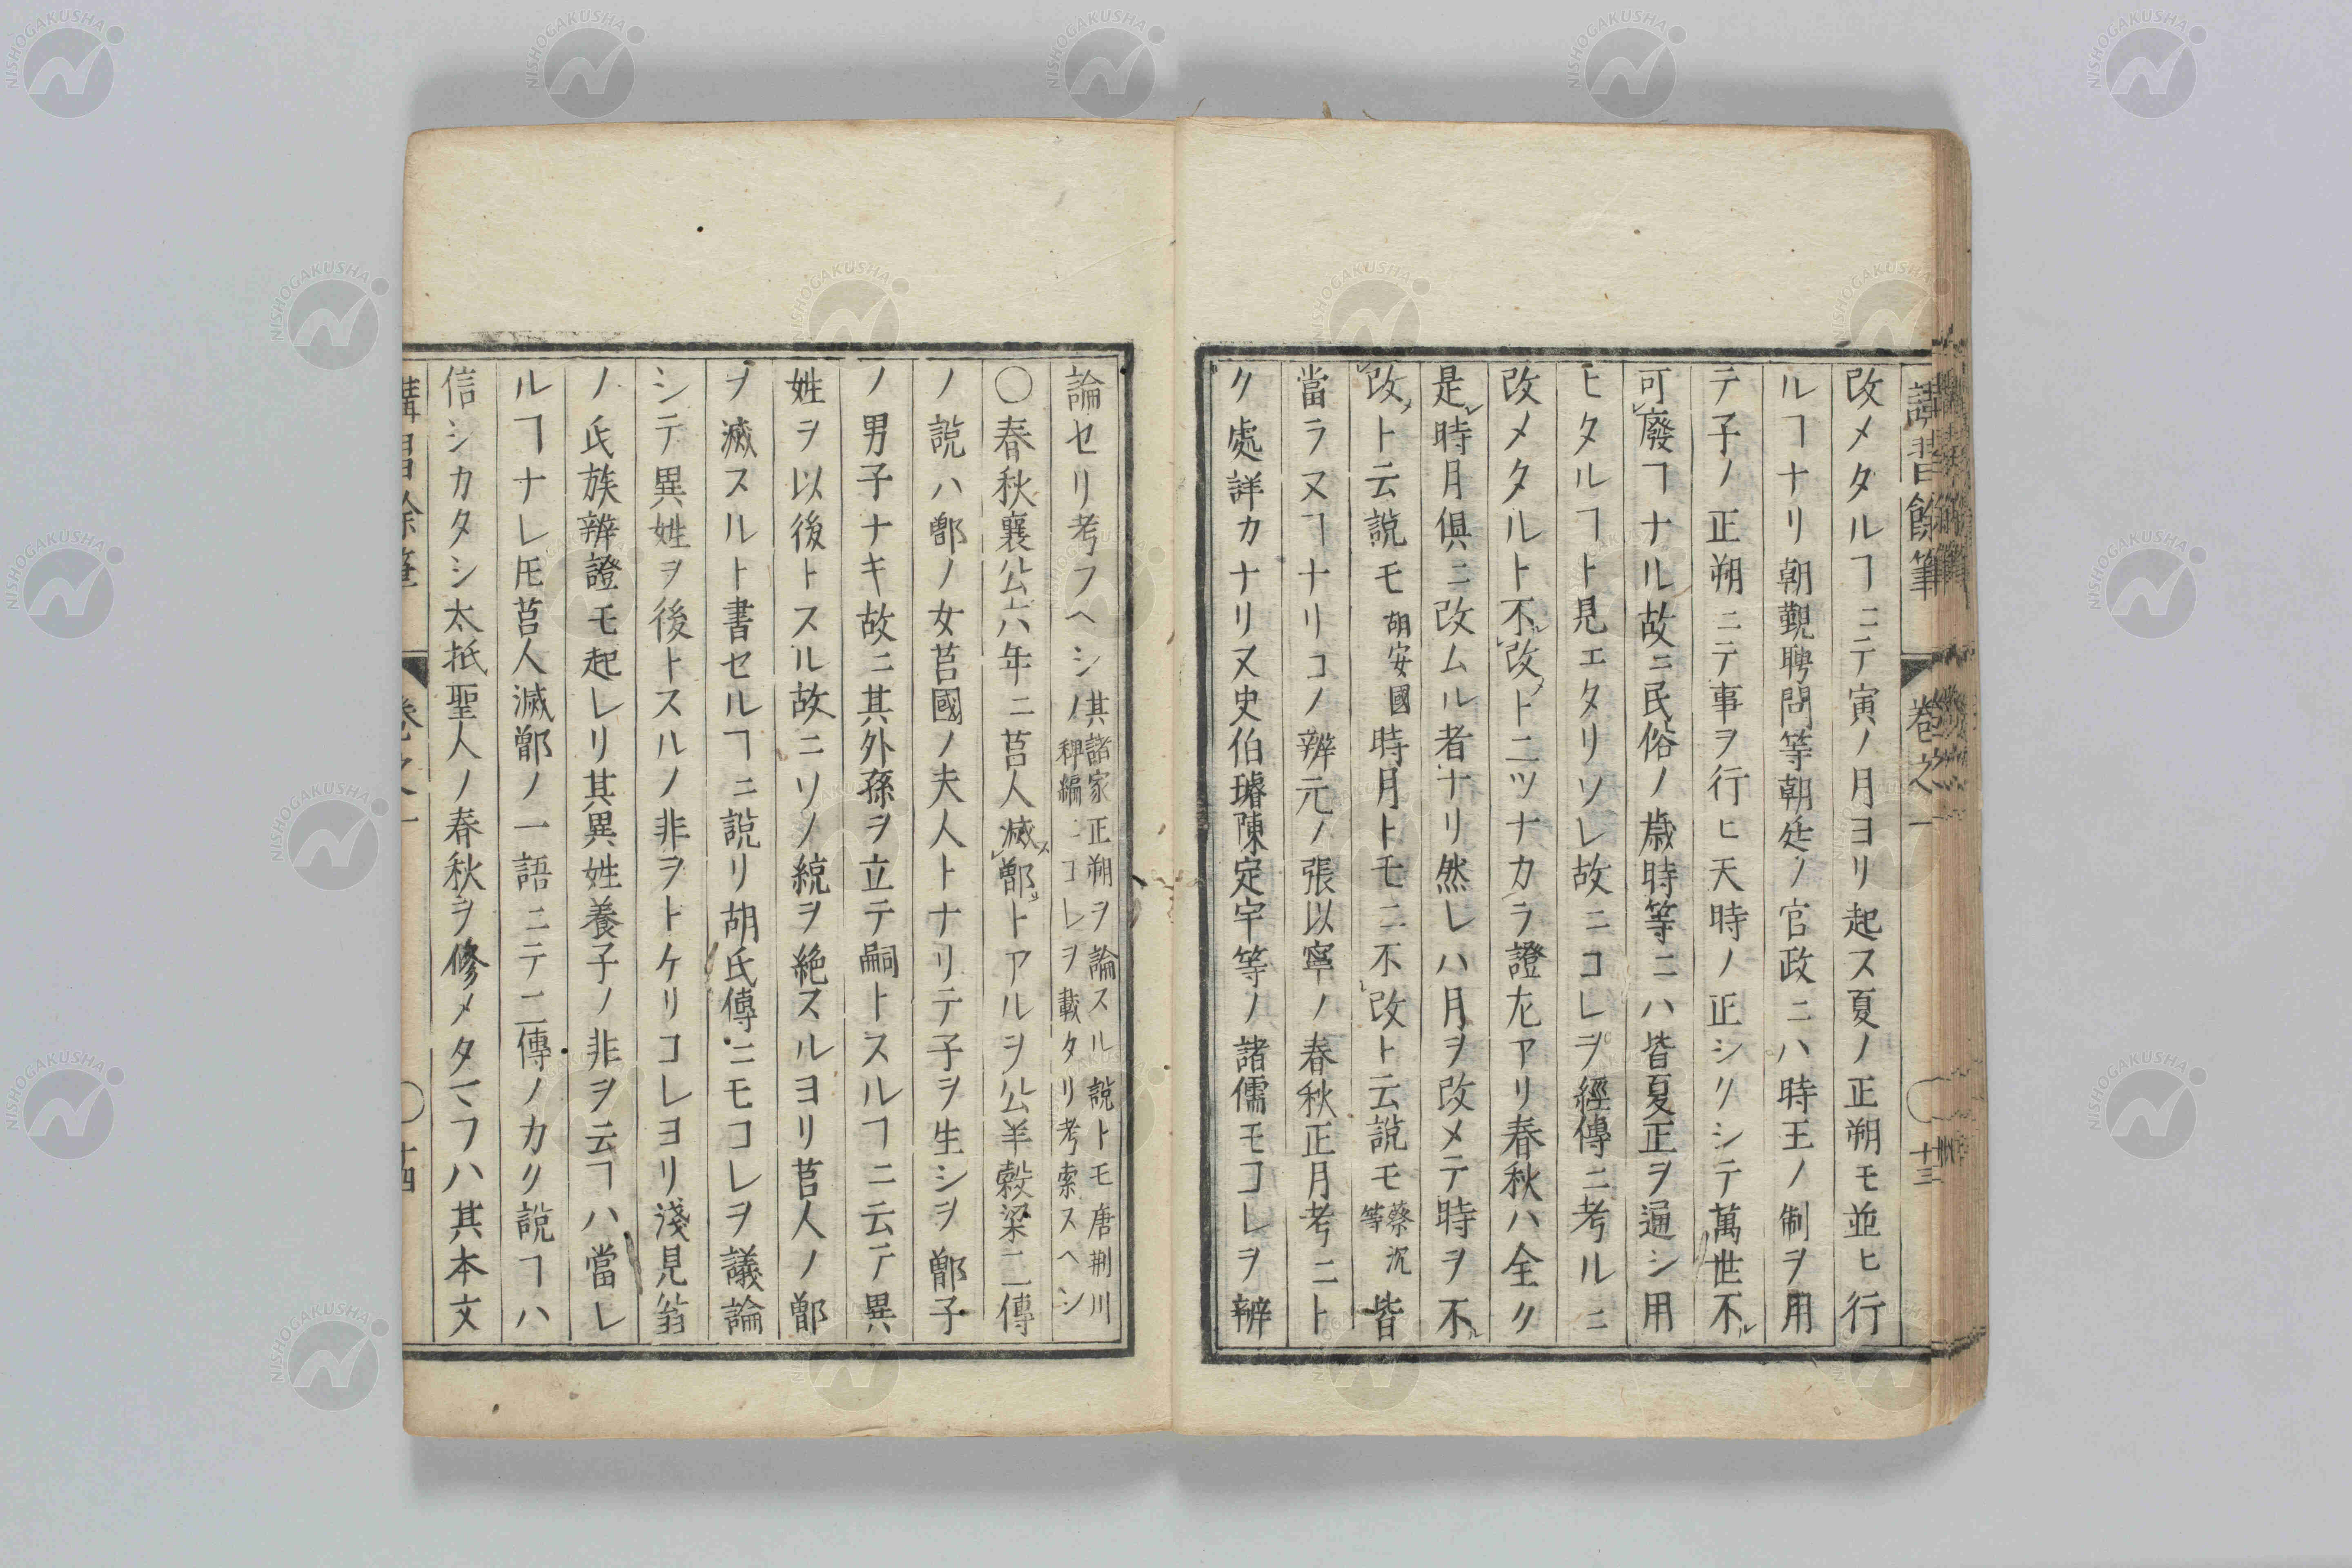 講習餘筆 巻之一 〇十三
改メタルヿニテ寅ノ月ヨリ起ス夏ノ正朔モ並ヒ行
ルヿナリ朝覲聘問等朝廷ノ官政ニハ時王ノ制ヲ用
テ子ノ正朔ニテ事ヲ行ヒ天時ノ正シクシテ萬世不レ
可レ廢ヿナル故ニ民俗ノ歳時等ニハ皆夏正ヲ通シ用
ヒタルヿト見エタリソレ故ニコレヲ經傳ニ考ルニ
改メタルト不レ改メトニツナカラ證左アリ春秋ハ全ク
是レ時月俱ニ改ムル者ナリ然レハ月ヲ改メテ時ヲ不レ
改メト云説モ胡安國時月トモニ不レ改ト云説モ蔡沉等皆
當ラヌヿナリコノ辨元ノ張以寧ノ春秋正月考ニト
ク處詳カナリ又史伯璿陳定宇等ノ諸儒モコレヲ辨
論セリ考フヘシ其諸家正朔ヲ論スル説トモ唐荆川
ノ稗編ニコレヲ載タリ考索スヘシ
〇春秋襄公六年ニ莒人滅メ鄫ヲトアルヲ公羊穀梁二傳
ノ説ハ鄫ノ女莒國ノ夫人トナリテ子ヲ生シヲ鄫子
ノ男子ナキ故ニ其外孫ヲ立テ嗣トスルヿニ云テ異
姓ヲ以後トスル故ニソノ統ヲ絶スルヨリ莒人ノ鄫
ヲ滅スルト書セルヿニ説リ胡氏傳ニモコレヲ議論
シテ異姓ヲ後トスルノ非ヲトケリコレヨリ淺見翁
ノ氏族辨證モ起レリ其異姓養子ノ非ヲ云ヿハ當レ
ルヿナレ𪜈莒人滅鄫ノ一語ニテ二傳ノカク説ヿハ
信シカタシ太抵聖人ノ春秋ヲ修メタマフハ其本文
講習餘筆 巻之一 〇十四
NISHOGAKUSHA